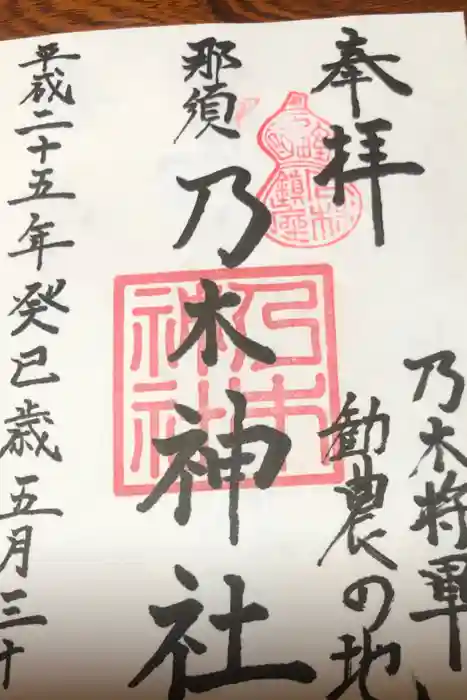 奉拝
乃木将軍
勧農の地
那須
乃木神社
乃木
神社
平成二十五年癸巳歳五月三十